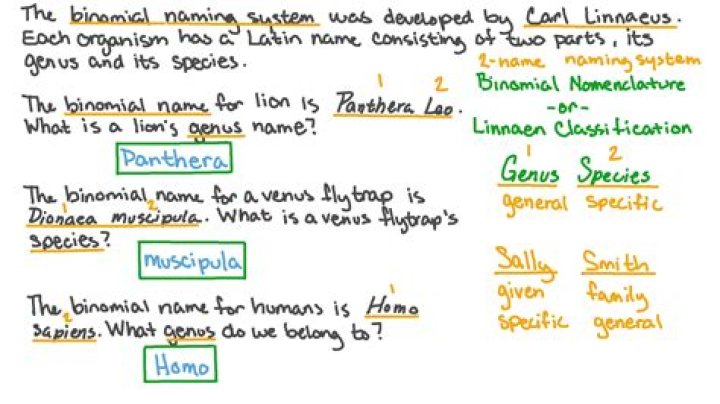 The binomial naming system was developed by Carl Linnaeus.
Each organism has a Latin name consisting of two parts, its
genus and its species.
1 2
The binomial name for lion is Panthera Leo.
What is a lion's genus name?
Panthera
The binomial name for a venus flytrap is
1 2
Dionaea muscipula. What is a venus flytrap's
species?
muscipula
1
The binomial name for humans is Homo
2
sapiens. What genus do we belong to?
Homo
2-name naming system
Binomial Nomenclature
-or-
Linnaen Classification
1 2
Genus Species
general specific
Sally Smith
given family
specific general